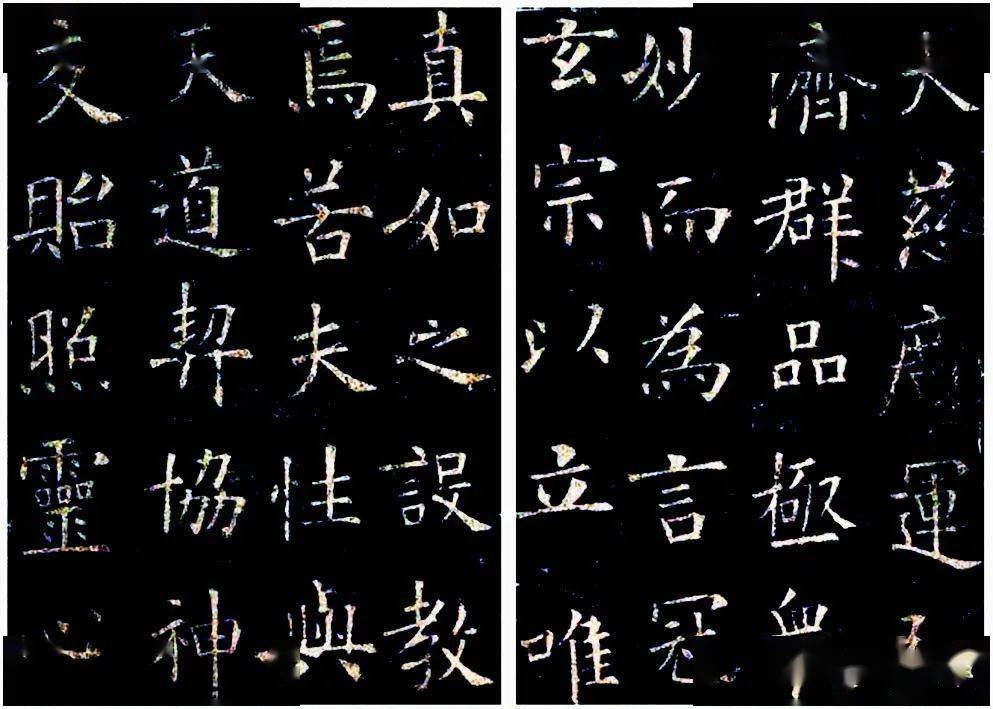 大慈廣運
濟群品極
妙而為言冠
玄宗以立唯
真如之設教
焉若夫性與
天道契協神
交貽照靈心